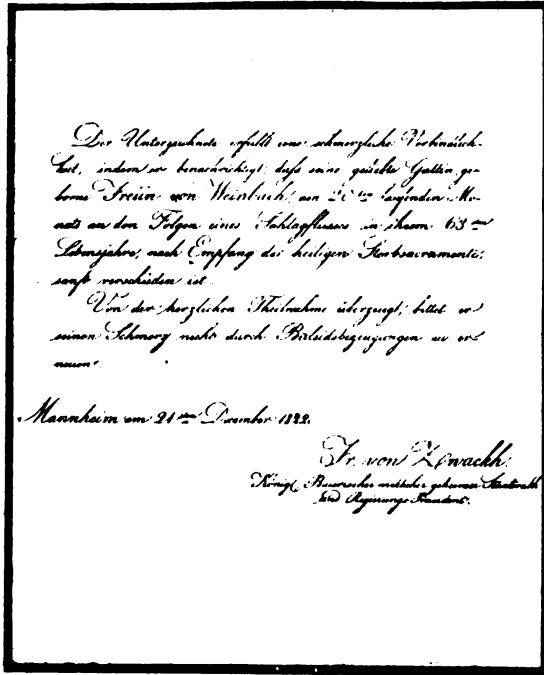 Der Unterzeichnete erfüllt eine schmerzliche Verbindlich-
keit, indem er benachrichtigt, daß seine geliebte Gattin ge-
borne Freiin von Weinbach, am 20ten laufenden Mo-
nats an den Folgen eines Schlagflusses in ihrem 63ten
Lebensjahre, nach Empfang der heiligen Sterbsacramente,
sanft verschieden ist.
Von der herzlichen Theilnahme überzeugt, bittet er
seinen Schmerz nicht durch Beileidsbezeugungen zu er-
neuern.
Mannheim am 21ten December 1822.
Fr. von Zwackh.
Königl. Baierischer wirklicher geheimer Staatsrath
und Regierungs Praesident.